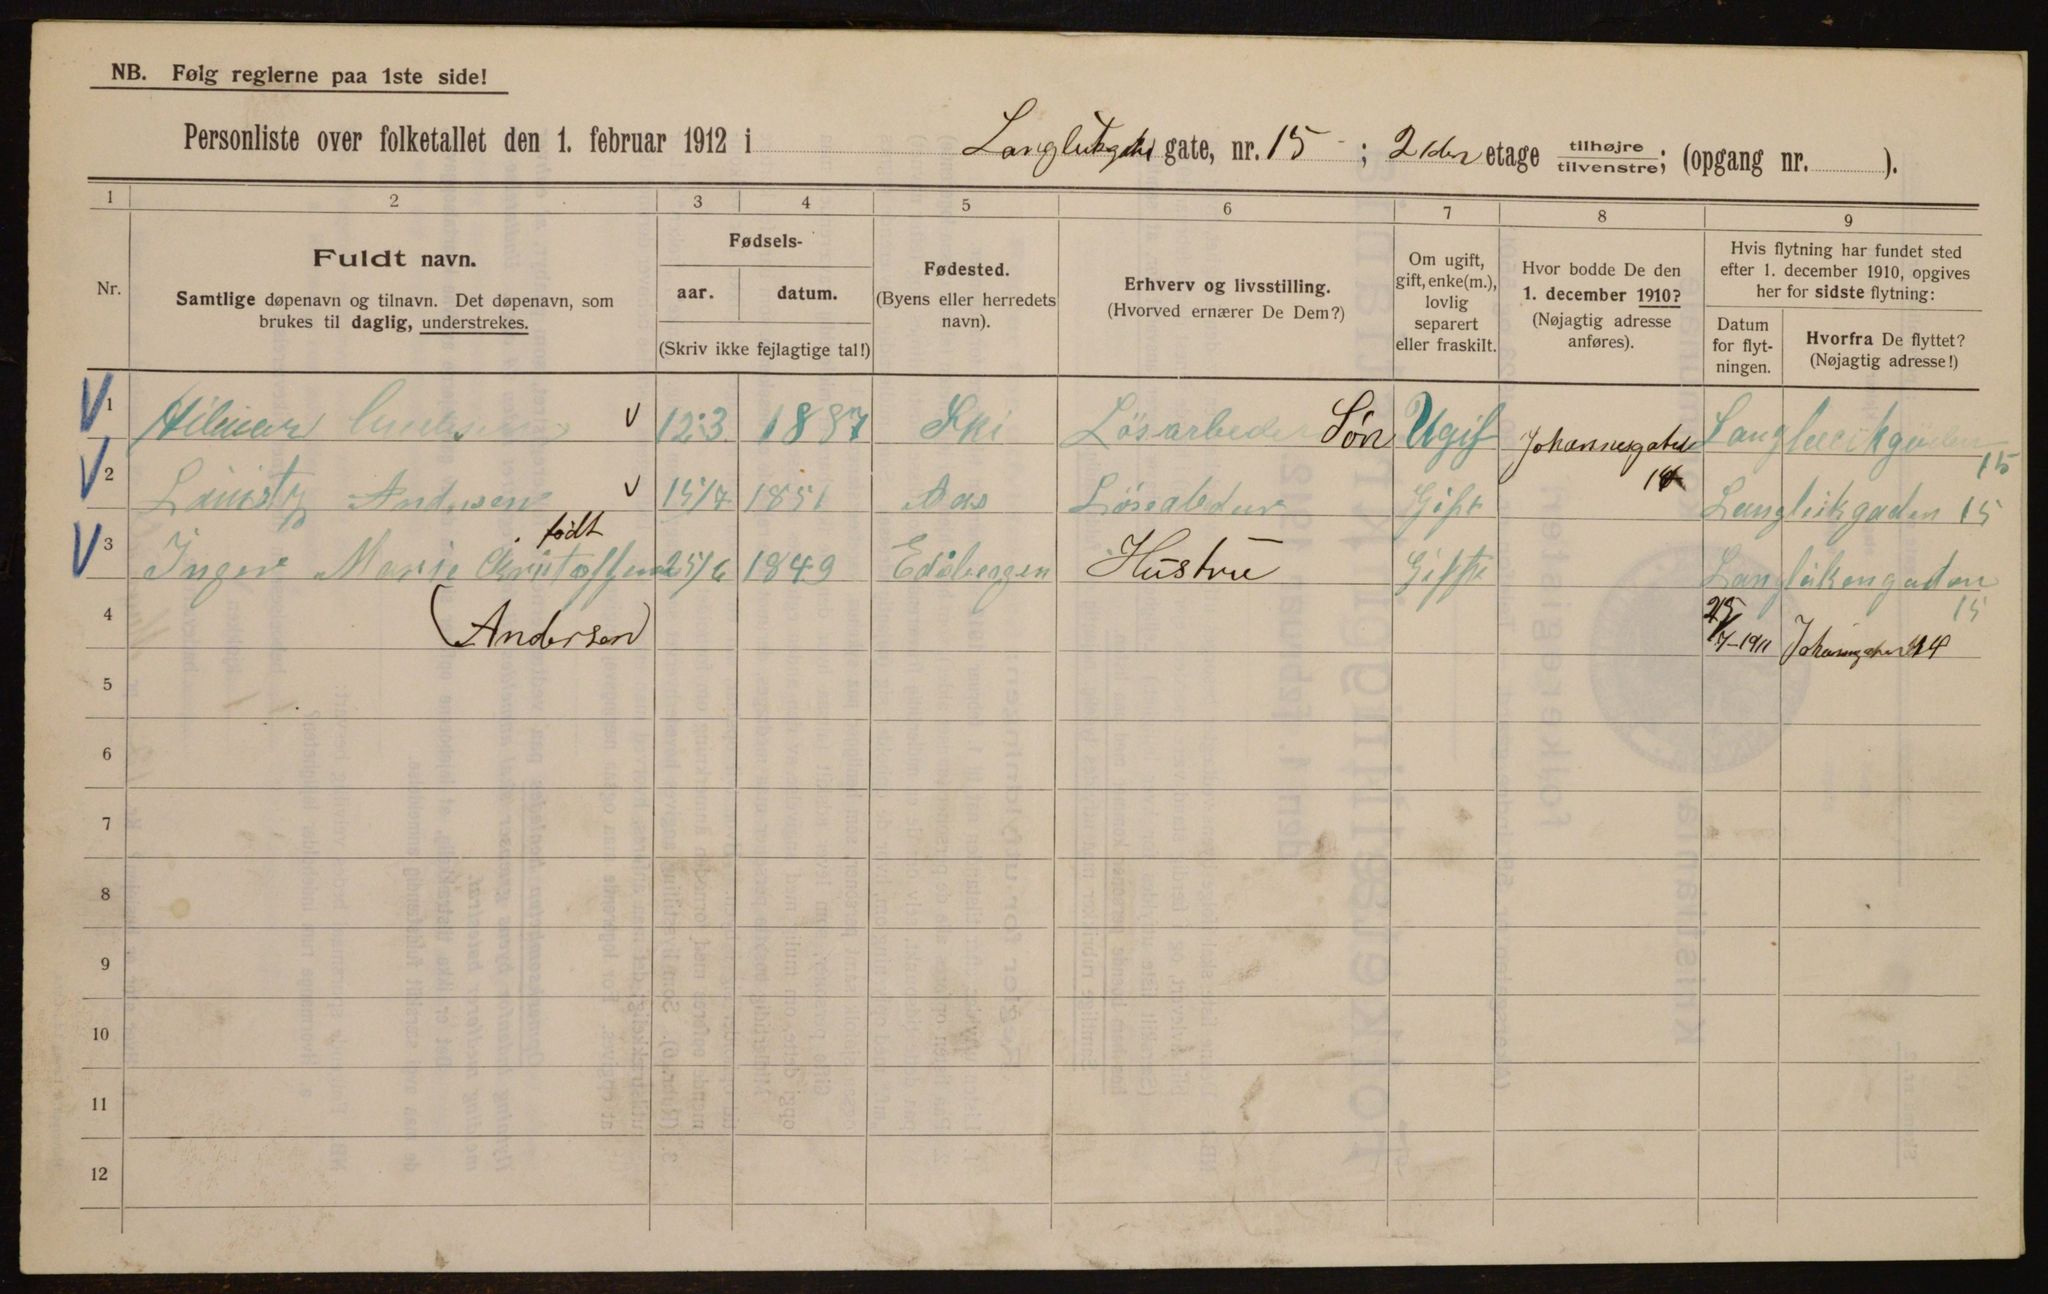 NB. Følg reglerne paa 1ste side!
Personliste over folketallet den 1. februar 1912 i gate, nr. 15 ; 2den etage tilhøjre/tilvenstre; (opgang nr. ).
1 2 3 4 5 6 7 8 9
Nr.
Fuldt navn.
Samtlige døpenavn og tilnavn. Det døpenavn, som
brukes til daglig, understrekes.
Fødsels-
aar. datum.
(Skriv ikke fejlagtige tal!)
Fødested.
(Byens eller herredets
navn).
Erhverv og livsstilling.
(Hvorved ernærer De Dem?)
Om ugift,
gift, enke(m.),
lovlig
separert
eller fraskilt.
Hvor bodde De den
1. december 1910?
(Nøjagtig adresse
anføres).
Hvis flytning har fundet sted
efter 1. december 1910, opgives
her for sidste flytning:
Datum
for flyt-
ningen.
Hvorfra De flyttet?
(Nøjagtig adresse!)
V 1 v 12:3 1887 Ski Løsarbeder Søn Ugif Johannesgaden
15
V 2 Andersen v 15/7 1851 Aas Gift Langleikgaden 15
født
V 3 Inger Marie 25/6 1849 Edsbergen Hustru Gifte
15
4 (Andersen) 25/7-1911 14
5
6
7
8
9
10
11
12